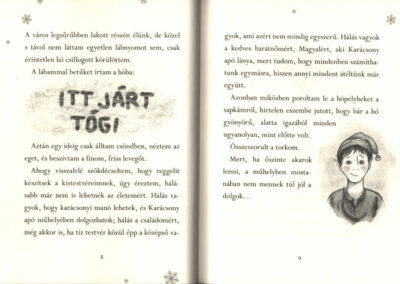 A város legsűrűbben lakott részén élünk, de közel
s távol nem láttam egyetlen lábnyomot sem, csak
érintetlen hó csillogott körülöttem.
A lábammal betűket írtam a hóba:
ITT JÁRT
TÓGI
Aztán egy ideig csak álltam csöndben, néztem az
eget, és beszívtam a finom, friss levegőt.
Ahogy visszafelé szökdécseltem, hogy reggelit
készítsek a kistestvéreimnek, úgy éreztem, hálá-
sabb már nem is lehetnék az életemért. Hálás va-
gyok, hogy karácsonyi manó lehetek, és Karácsony
apó műhelyében dolgozhatok; hálás a családomért,
még akkor is, ha tíz testvér közül épp a középső va-
8
gyok, ami azért nem mindig egyszerű. Hálás vagyok
a kedves barátnőmért, Magyalért, aki Karácsony
apó lánya, mert tudom, hogy mindenben számítha-
tunk egymásra, hiszen annyi mindent átéltünk már
együtt.
Azonban miközben poroltam le a hópelyheket a
sapkámról, hirtelen eszembe jutott, hogy bár a hó
gyönyörű, alatta igazából minden
ugyanolyan, mint előtte volt.
Összeszorult a torkom.
Mert, ha őszinte akarok
lenni, a műhelyben mosta-
nában nem mennek túl jól a
dolgok…
9